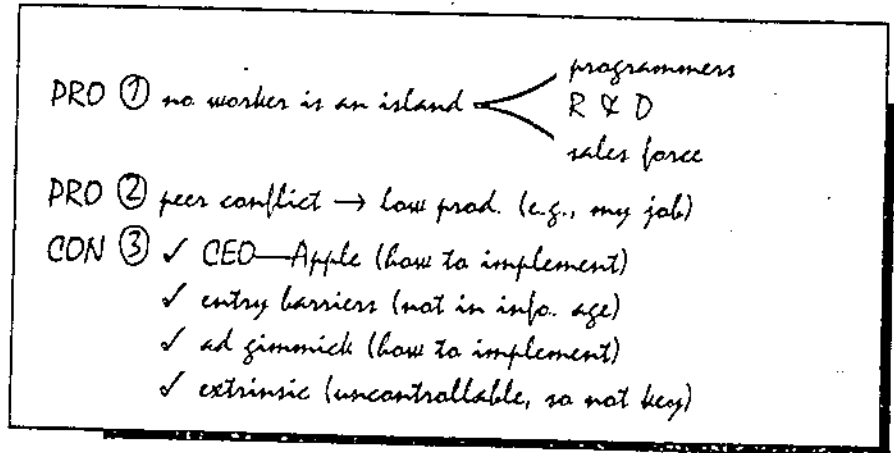 PRO ① no worker is an island
programmers
R & D
sales force
PRO ② peer conflict → low prod. (e.g., my job)
CON ③ ✓ CEO—Apple (how to implement)
✓ entry barriers (not in info. age)
✓ ad gimmick (how to implement)
✓ extrinsic (uncontrollable, so not key)